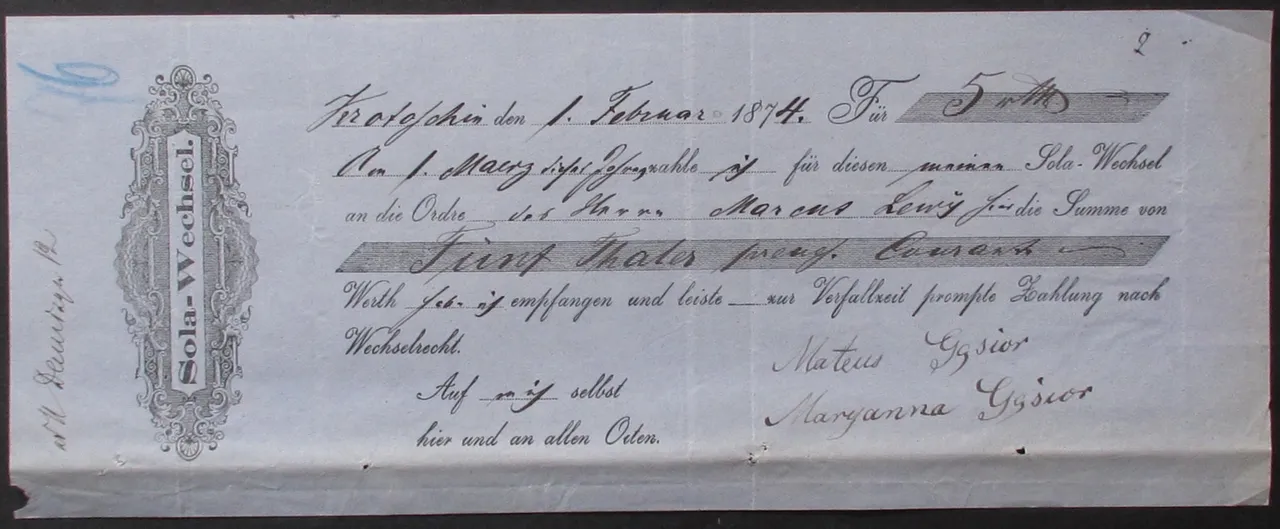 2
16
Krotoschin den 1. Februar 1874. Für 5 rth
Sola-Wechsel.
Am 1. Maerz dieses Jahres zahle ich für diesen meinen Sola-Wechsel
an die Ordre des Herrn Marcus Lewy hier die Summe von
Fünf Thaler preuß. Courant
Werth hab ich empfangen und leiste zur Verfallzeit prompte Zahlung nach
Wechselrecht.
Mateus Gąsior
Auf mich selbst
Maryanna Gąsior
hier und an allen Orten.